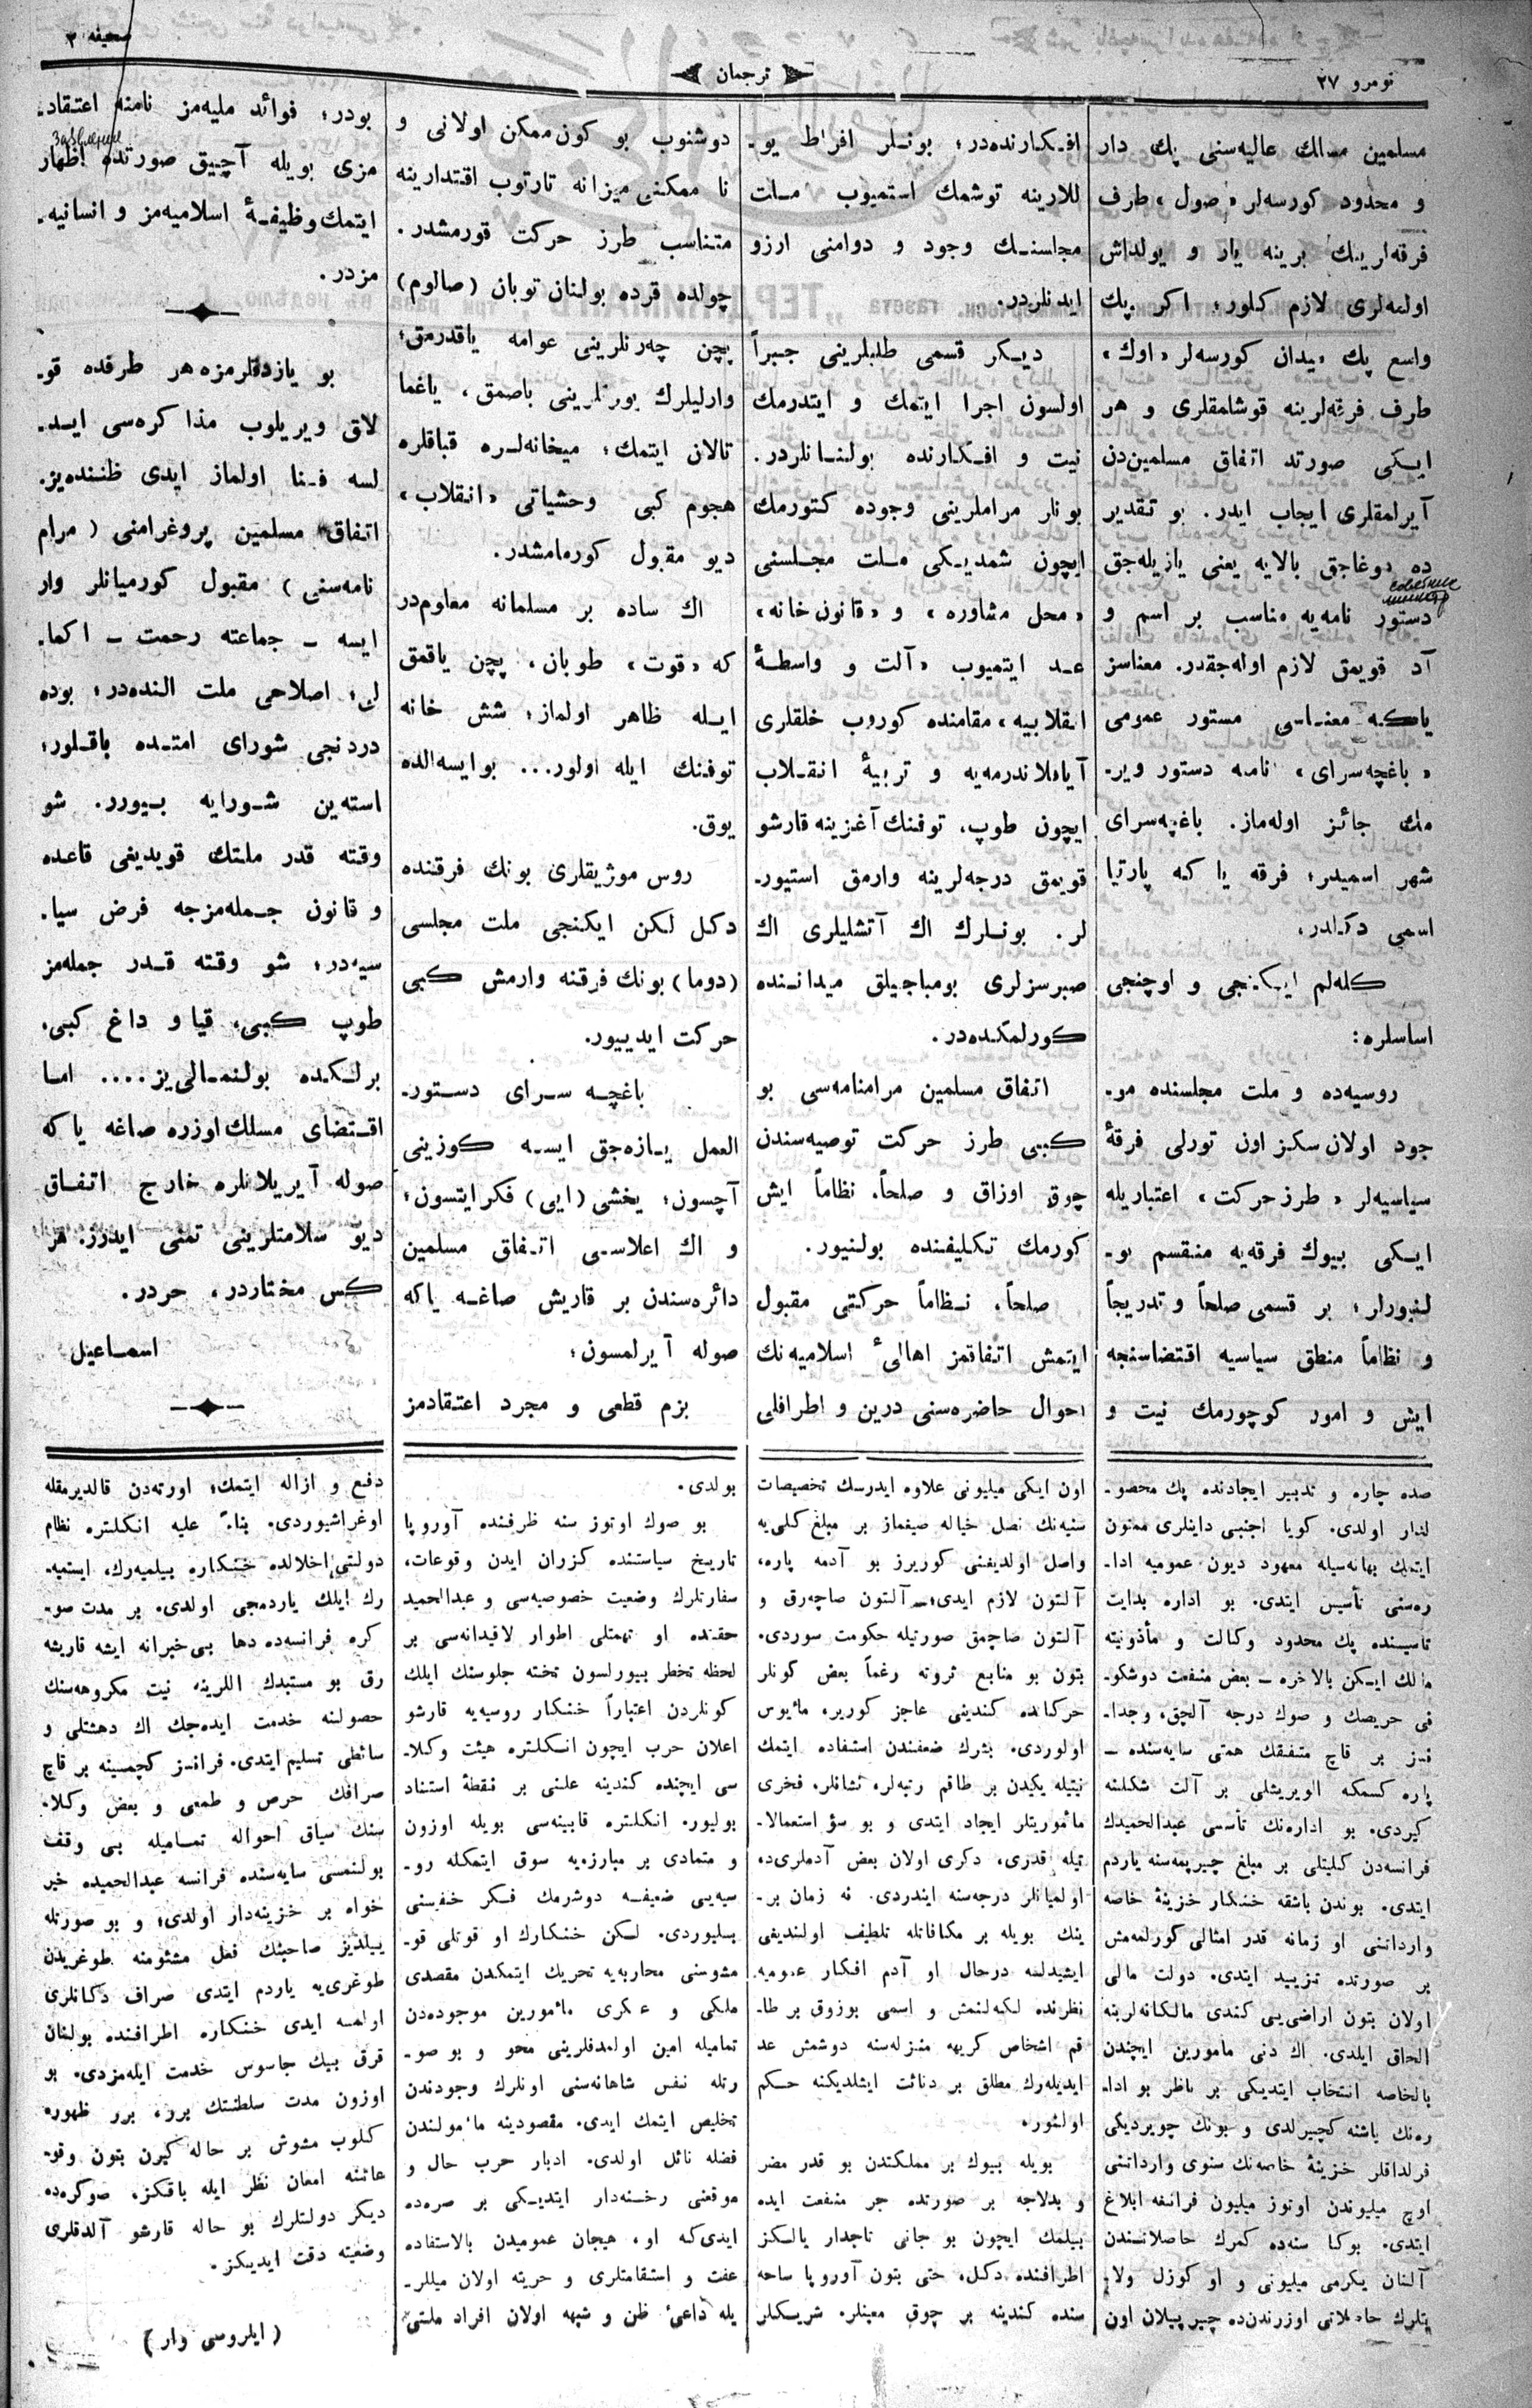 نومرو ٢٧
ترجمان
صحيفه ٣
مسلمين مسالك عاليه‌سنى پك دار
و محدود كورسه‌لر «صول» طرف
فرقه‌لرينك برينه يار و يولداش
اولمه‌لرى لازم كلور؛ اكر پك
واسع پك ميدان كورسه‌لر «اوك»
طرف فرقه‌لرينه قوشامقلرى و هر
ايكى صورتده اتفاق مسلمين‌دن
آيرلمقلرى ايجاب ايدر. بو تقدير
ده دوغاجق بالايه يعنى يازيله‌جق
دستور نامه‌يه مناسب بر اسم و
آد قويمق لازم اوله‌جقدر. معناسز
ياكه معناسى مستور عمومى
«باغچه‌سراى» نامه دستور وير-
مك جائز اوله‌ماز. باغچه‌سراى
شهر اسميدر؛ فرقه يا كه پارتيا
اسمى دكلدر.
كله‌لم ايكنجى و اوچنجى
اساسلره:
روسيه‌ده و ملت مجلسنده مو-
جود اولان سكز اون تورلى فرقهٔ
سياسيه‌لر «طرز حركت» اعتباريله
ايكى بيوك فرقه‌يه منقسم بو-
لنيورلر؛ بر قسمى صلحاً و تدريجاً
و نظاماً منطق سياسيه اقتضاسنجه
ايش و امور كوچورمك نيت و
افكارنده‌در؛ بونلر افراط يو-
للارينه توشمك استميوب ملت
مجلسنك وجود و دوامنى ارزو
ايدنلردر.
ديكر قسمى طلبلرينى جبراً
اولسون اجرا ايتمك و ايتدرمك
نيت و افكارنده بولنانلردر.
بونلر مراملرينى وجوده كتورمك
ايچون شمديكى ملت مجلسنى
«محل مشاوره» و «قانون خانه»
عد ايتميوب «آلت و واسطهٔ
انقلابيه» مقامنده كوروب خلقلرى
آياقلاندرمه‌يه و تربيهٔ انقلاب
ايچون طوپ، توفنك آغزينه قارشو
قويمق درجه‌لرينه وارمق استيور-
لر. بونلرك اك آتشليلرى اك
صبرسزلرى بومباجيلق ميداننده
كورلمكده‌در.
اتفاق مسلمين مرامنامه‌سى بو
كبى طرز حركت توصيه‌سندن
چوق اوزاق و صلحاً، نظاماً ايش
كورمك تكليفنده بولنيور.
صلحاً، نظاماً حركتى مقبول
ايتمش اتفاقمز اهالىٔ اسلاميه‌نك
احوال حاضره‌سنى درين و اطرافلى
دوشنوب بو كون ممكن اولانى و
نا ممكنى ميزانه تارتوب اقتدارينه
متناسب طرز حركت قورمشدر.
چولده قرده بولنان توبان (صالوم)
پچن چه‌رنلرينى عوامه ياقدرمق؛
وارليلرك يورتلرينى باصمق، ياغما
تالان ايتمك؛ ميخانه‌لره قباقلره
هجوم كبى وحشياتى «انقلاب»
ديو مقبول كورمامشدر.
اك ساده بر مسلمانه معلومدر
كه «قوت» طوبان، پچن ياقمق
ايله ظاهر اولماز؛ شش خانه
توفنك ايله اولور... بو ايسه الده
يوق.
روس موژيقلرى بونك فرقنده
دكل لكن ايكنجى ملت مجلسى
(دوما) بونك فرقنه وارمش كبى
حركت ايدييور.
باغچه سراى دستور-
العمل يازه‌جق ايسه كوزينى
آچسون؛ يخشى (ايى) فكر ايتسون؛
و اك اعلاسى اتفاق مسلمين
دائره‌سندن بر قاريش صاغه ياكه
صوله آيرلمسون؛
بزم قطعى و مجرد اعتقادمز
بودر؛ فوائد مليه‌مز نامنه اعتقاد-
مزى بويله آچيق صورتده اظهار
ايتمك وظيفهٔ اسلاميه‌مز و انسانيه-
مزدر.
بو يازدقلرمزه هر طرفده قو-
لاق ويريلوب مذاكره‌سى ايد-
لسه فنا اولماز ايدى ظننده‌يز.
اتفاق مسلمين پروغرامنى (مرام
نامه‌سنى) مقبول كورميانلر وار
ايسه — جماعته رحمت — اكما-
لى؛ اصلاحى ملت النده‌در؛ بوده
دردنجى شوراى امتده باقلور؛
استه‌ين شورايه بيورر. شو
وقته قدر ملتك قويديغى قاعده
و قانون جمله‌مزجه فرض سيا-
سيه‌در؛ شو وقته قدر جمله‌مز
طوپ كبى، قيا و داغ كبى،
برلكده بولنمالى‌يز.... اما
اقتضاى مسلك اوزره صاغه ياكه
صوله آيريلانلره خارج اتفاق
ديو سلامتلرينى تمنى ايدرز. هر
كس مختاردر، حردر.
اسماعيل
صده چاره و تدبير ايجادنده پك محصو-
لدار اولدى. كويا اجنبى داينلرى ممنون
ايتمك بهانه‌سيله معهود ديون عموميه ادا-
ره‌سنى تأسيس ايتدى. بو اداره بدايت
تأسيسنده پك محدود وكالت و مأذونيته
مالك ايكن بالاخره — بعض منفعت دوشكو-
نى حريصك و صوك درجه آلچق، وجدا-
نسز بر قاچ متفقك همتى سايه‌سنده —
پاره كسمكه الويريشلى بر آلت شكلنه
كيردى. بو اداره‌نك تأسسى عبدالحميدك
فرانسه‌دن كليتلى بر مبلغ چيرپمه‌سنه ياردم
ايتدى. بوندن باشقه خنكار خزينهٔ خاصه
وارداتنى او زمانه قدر امثالى كورلمه‌مش
بر صورتده تزييد ايتدى. دولت مالى
اولان بتون اراضى‌يى كندى مالكانه‌لرينه
الحاق ايلدى. اك دنى مامورين ايچندن
بالخاصه انتخاب ايتديكى بر ناظر بو ادا-
ره‌نك باشنه كچيرلدى و بونك چويرديكى
فرلداقلر خزينهٔ خاصه‌نك سنوى وارداتنى
اوچ ميليوندن اوتوز ميليون فرانغه ابلاغ
ايتدى. بوكا سنه‌ده كمرك حاصلاتندن
آلنان يكرمى ميليونى و او كوزل ولا-
يتلرك حاصلاتى اوزرندن‌ده چيرپيلان اون
اون ايكى ميليونى علاوه ايدرسك تخصيصات
سنيه‌نك نصل خياله صيغماز بر مبلغ كلى‌يه
واصل اولديغنى كوريرز بو آدمه پاره،
آلتون لازم ايدى؛ — آلتون صاچه‌رق و
آلتون صاچمق صورتيله حكومت سوردى.
بتون بو منابع ثروته رغماً بعض كونلر
حركاتده كندينى عاجز كورير، مائيوس
اولوردى. بشرك ضعفندن استفاده ايتمك
نيتيله يكيدن بر طاقم رتبه‌لر، نشانلر، فخرى
مأموريتلر ايجاد ايتدى و بو سؤ استعمالا-
تيله قدرى، دكرى اولان بعض آدملرى‌ده
اولميانلر درجه‌سنه ايندردى. نه زمان بر-
ينك بويله بر مكافاتله تلطيف اولنديغى
ايشيدلسه درحال او آدم افكار عموميه
نظرنده لكه‌لنمش و اسمى بوزوق بر طا-
قم اشخاص كريهه منزله‌سنه دوشمش عد
ايديله‌رك مطلق بر دنائت ايشلديكنه حكم
اولنور.
بويله بيوك بر مملكتدن بو قدر مضر
و بدلاجه بر صورتده جر منفعت ايده
بيلمك ايچون بو جانى تاجدار يالكز
اطرافنده دكل، حتى بتون آوروپا ساحه
سنده كندينه بر چوق معينلر، شريكلر
بولدى.
بو صوك اوتوز سنه ظرفنده آوروپا
تاريخ سياستنده كزران ايدن وقوعات،
سفارتلرك وضعيت خصوصيه‌سى و عبدالحميد
حقنده او تهمتلى اطوار لاقيدانه‌سى بر
لحظه تخطر بيورلسون تخته جلوسنك ايلك
كونلردن اعتباراً خنكار روسيه‌يه قارشو
اعلان حرب ايچون انكلتره هيئت وكلا-
سى ايچنده كندينه علنى بر نقطهٔ استناد
بوليور. انكلتره قابينه‌سى بويله اوزون
و متمادى بر مبارزه‌يه سوق ايتمكله رو-
سيه‌يى ضعيفه دوشرمك فكر خفيسنى
بسليوردى. لكن خنكارك او قوتلى قو-
مشوسنى محاربه‌يه تحريك ايتمكدن مقصدى
ملكى و عسكرى مأمورين موجوده‌دن
تماميله امين اولمدقلرينى محو و بو صو-
رتله نفس شاهانه‌سنى اونلرك وجودندن
تخليص ايتمك ايدى. مقصودينه مأمولندن
فضله نائل اولدى. ادبار حرب حال و
موقعنى رخنه‌دار ايتديكى بر صره‌ده
ايدى‌كه او، هيجان عموميدن بالاستفاده
عفت و استقامتلرى و حريته اولان ميللر-
يله داعىٔ ظن و شبهه اولان افراد ملتى
دفع و ازاله ايتمك؛ اورته‌دن قالديرمقله
اوغراشيوردى. بناءً عليه انكلتره نظام
دولتى اخلالده خنكاره بيلميه‌رك، ايستميه-
رك ايلك ياردمجى اولدى. بر مدت صو-
كره فرانسه‌ده دها بى‌خبرانه ايشه قاريشه
رق بو مستبدك اللرينه نيت مكروهه‌سنك
حصولنه خدمت ايده‌جك اك دهشتلى و
سائطى تسليم ايتدى. فرانسز كچمسينه بر قاچ
صرافك حرص و طمعى و بعض وكلا-
سنك سياق احواله تماميله بى وقف
بولنمسى سايه‌سنده فرانسه عبدالحميده خير
خواه بر خزينه‌دار اولدى؛ و بو صورتله
ييلديز صاحبنك فعل مشئومنه طوغريدن
طوغرى‌يه ياردم ايتدى صراف دكانلرى
اولمسه ايدى خنكاره اطرافنده بولنان
قرق بيك جاسوس خدمت ايله‌مزدى. بو
اوزون مدت سلطنتك برر، برر ظهوره
كلوب مشوش بر حاله كيرن بتون وقو-
عاتنه امعان نظر ايله باقكز، صوكره‌ده
ديكر دولتلرك بو حاله قارشو آلدقلرى
وضعيته دقت ايديكز.
(ايلروسى وار)